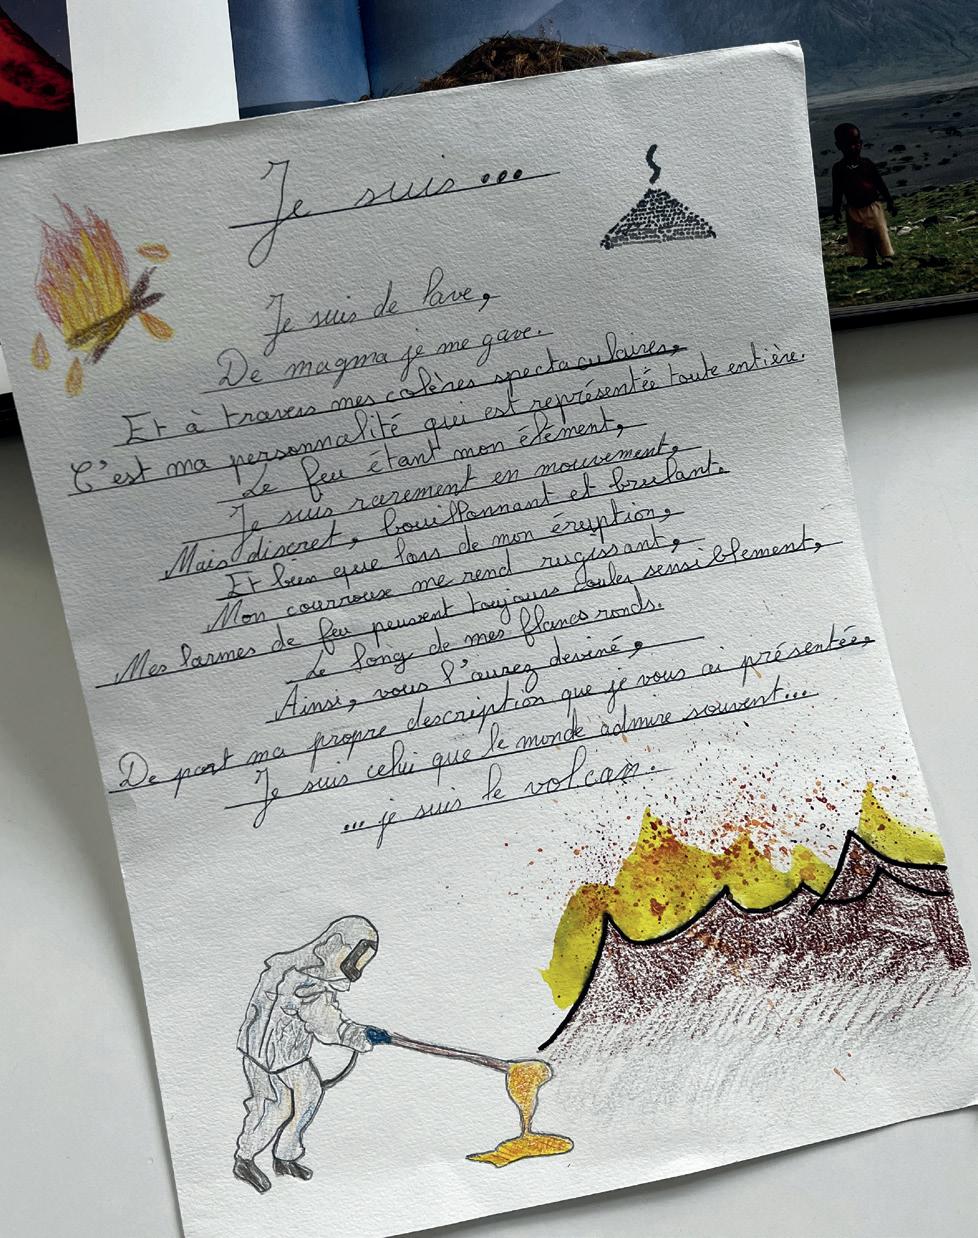 Je suis...
Je suis de lave,
De magma je me gave.
Et à travers mes colères spectaculaires,
C'est ma personnalité qui est représentée toute entière.
Le feu étant mon élément,
Je suis rarement en mouvement,
Mais discret, bouillonnant et brulant.
Et bien que lors de mon éruption,
Mon courroux me rend rugissant,
Mes larmes de feu peuvent toujours couler sensiblement,
Le long de mes flancs ronds.
Ainsi, vous l'aurez deviné,
De part ma propre description que je vous ai présentée,
Je suis celui que le monde admire souvent...
... je suis le volcan.